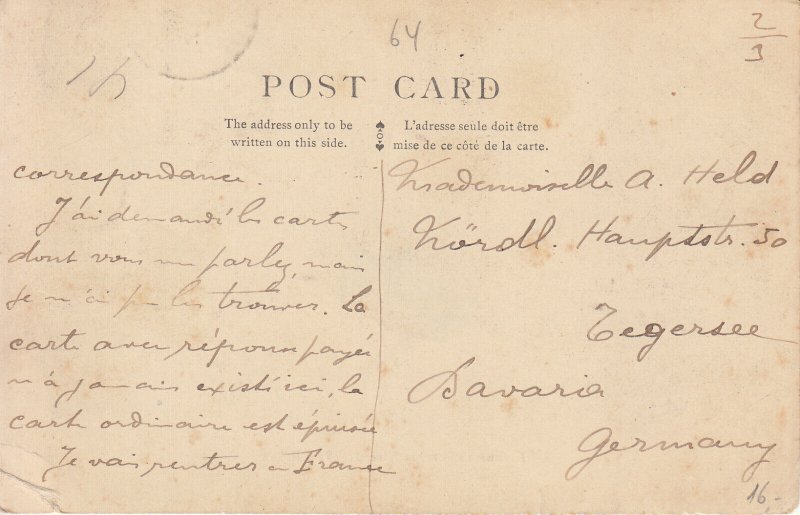 64
2
3
POST CARD
The address only to be
written on this side.
L'adresse seule doit être
mise de ce côté de la carte.
correspondance.
J'ai demandé les cartes
dont vous me parlez, mais
je n'ai pu les trouver. La
carte avec réponse payée
n'a jamais existé ici, la
carte ordinaire est épuisée
Je vais rentrer en France
Mademoiselle A. Held
Nördl. Hauptstr. 50
Tegersee
Bavaria
Germany
16.-